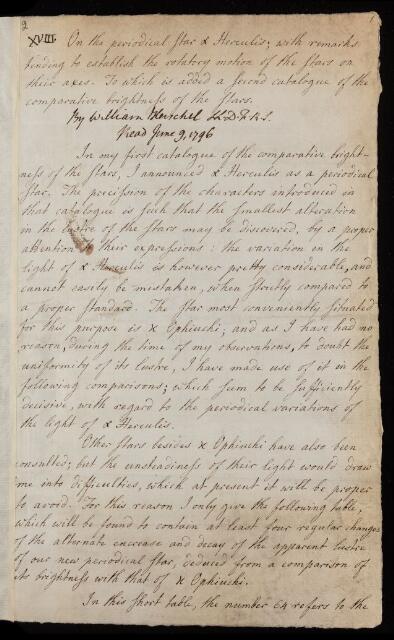 2
1
XVIII. On the periodical star α Herculis; with remarks
tending to establish the rotatory motion of the stars on
their axes. To which is added a second catalogue of the
comparative brightness of the stars.
By William Herschel LL.D. F.R.S.
Read June 9, 1796
In my first catalogue of the comparative bright-
ness of the stars, I announced α Herculis as a periodical
star. The precission of the characters introduced in
that catalogue is such that the smallest alteration
in the lustre of the stars may be discovered, by a proper
attention to their expressions: the variation in the
light of α Herculis is however pretty considerable, and
cannot easily be mistaken, when strictly compared to
a proper standard. The star most conveniently situated
for this purpose is κ Ophiuchi; and as I have had no
reason, during the time of my observations, to doubt the
uniformity of its lustre, I have made use of it in the
following comparisons; which seem to be sufficiently
decisive, with regard to the periodical variations of
the light of α Herculis.
Other stars besides κ Ophiuchi have also been
consulted; but the unsteadiness of their light would draw
me into difficulties, which at present it will be proper
to avoid. For this reason I only give the following table,
which will be found to contain at least four regular changes
of the alternate encrease and decay of the apparent lustre
of our new periodical star, deduced from a comparison of
its brightness with that of κ Ophiuchi.
In this short table, the number 64 refers to the